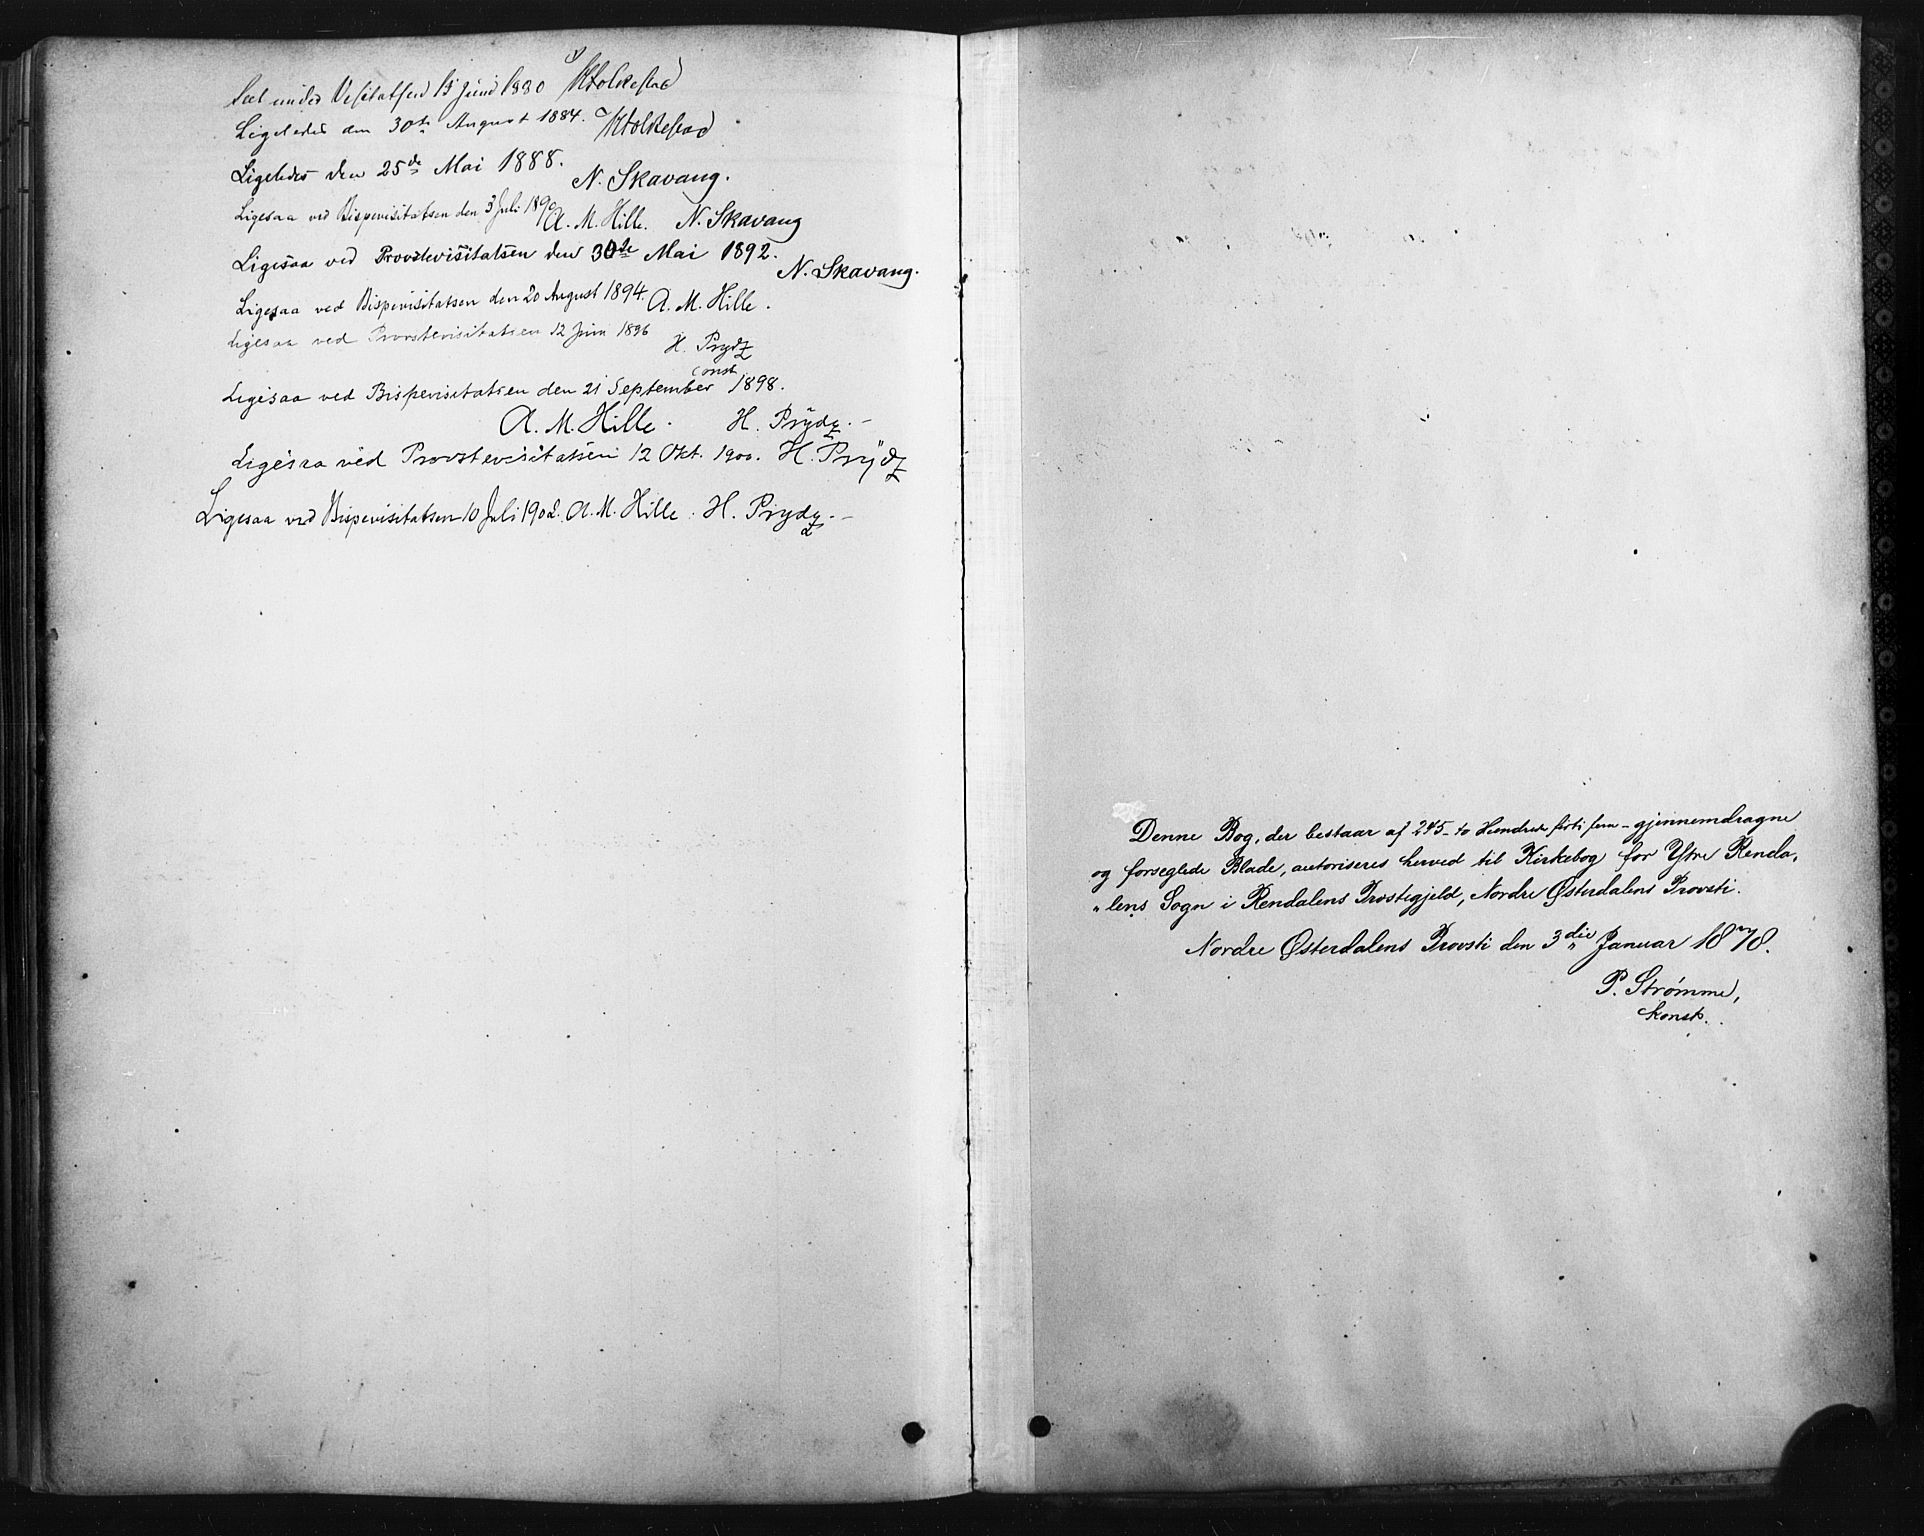 Seet under Visitatsen 15 Juni 1880 Kholkestad
Ligeledes den 30te August 1884. Kholkestad
Ligeledes den 25de Mai 1888.
N. Skavang.
Ligesaa ved Bispevisitatsen den 3 Juli 1890 A. M. Hille. N. Skavang
Ligesaa ved Provstevisitatsen den 30te Mai 1892.
N. Skavang.
Ligesaa ved Bispevisitatsen den 20 August 1894. A. M. Hille.
Ligesaa ved Provstevisitatsen 12 Juni 1896
H. Prydz
const
Ligesaa ved Bispevisitatsen den 21 September 1898.
A. M. Hille. H. Prydz.
Ligesaa ved Provstevisitatsen 12 Okt. 1900. H. Prydz
Ligesaa ved Bispevisitatsen 10 Juli 1902. A. M. Hille. H. Prydz.
Denne Bog, der bestaar af 245 - to Hundrede førti fem - gjennemdragne
og forseglede Blade, autoriseres herved til Kirkebog for Ytre Renda-
lens Sogn i Rendalens Præstegjeld, Nordre Østerdalens Provsti.
Nordre Østerdalens Provsti den 3die Januar 1878.
P. Strømme,
konst.